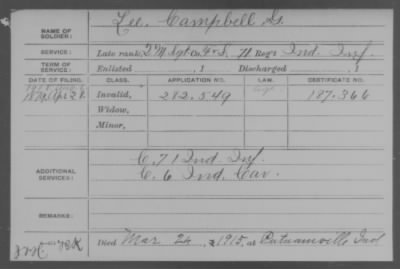 NAME OF SOLDIER: Lee, Campbell G.
SERVICE: Late rank, 2 M Sgt Co. F & S, 71 Reg't Ind. Inf.
TERM OF SERVICE: Enlisted , 1 Discharged , 1
DATE OF FILING. CLASS. APPLICATION NO. LAW. CERTIFICATE NO.
Invalid, 282.549 187.366
Widow,
Minor,
ADDITIONAL SERVICES:
C. 71 Ind. Inf.
C. 6 Ind. Cav.
REMARKS:
Died Mar 24, 1915, at Putnamville Ind